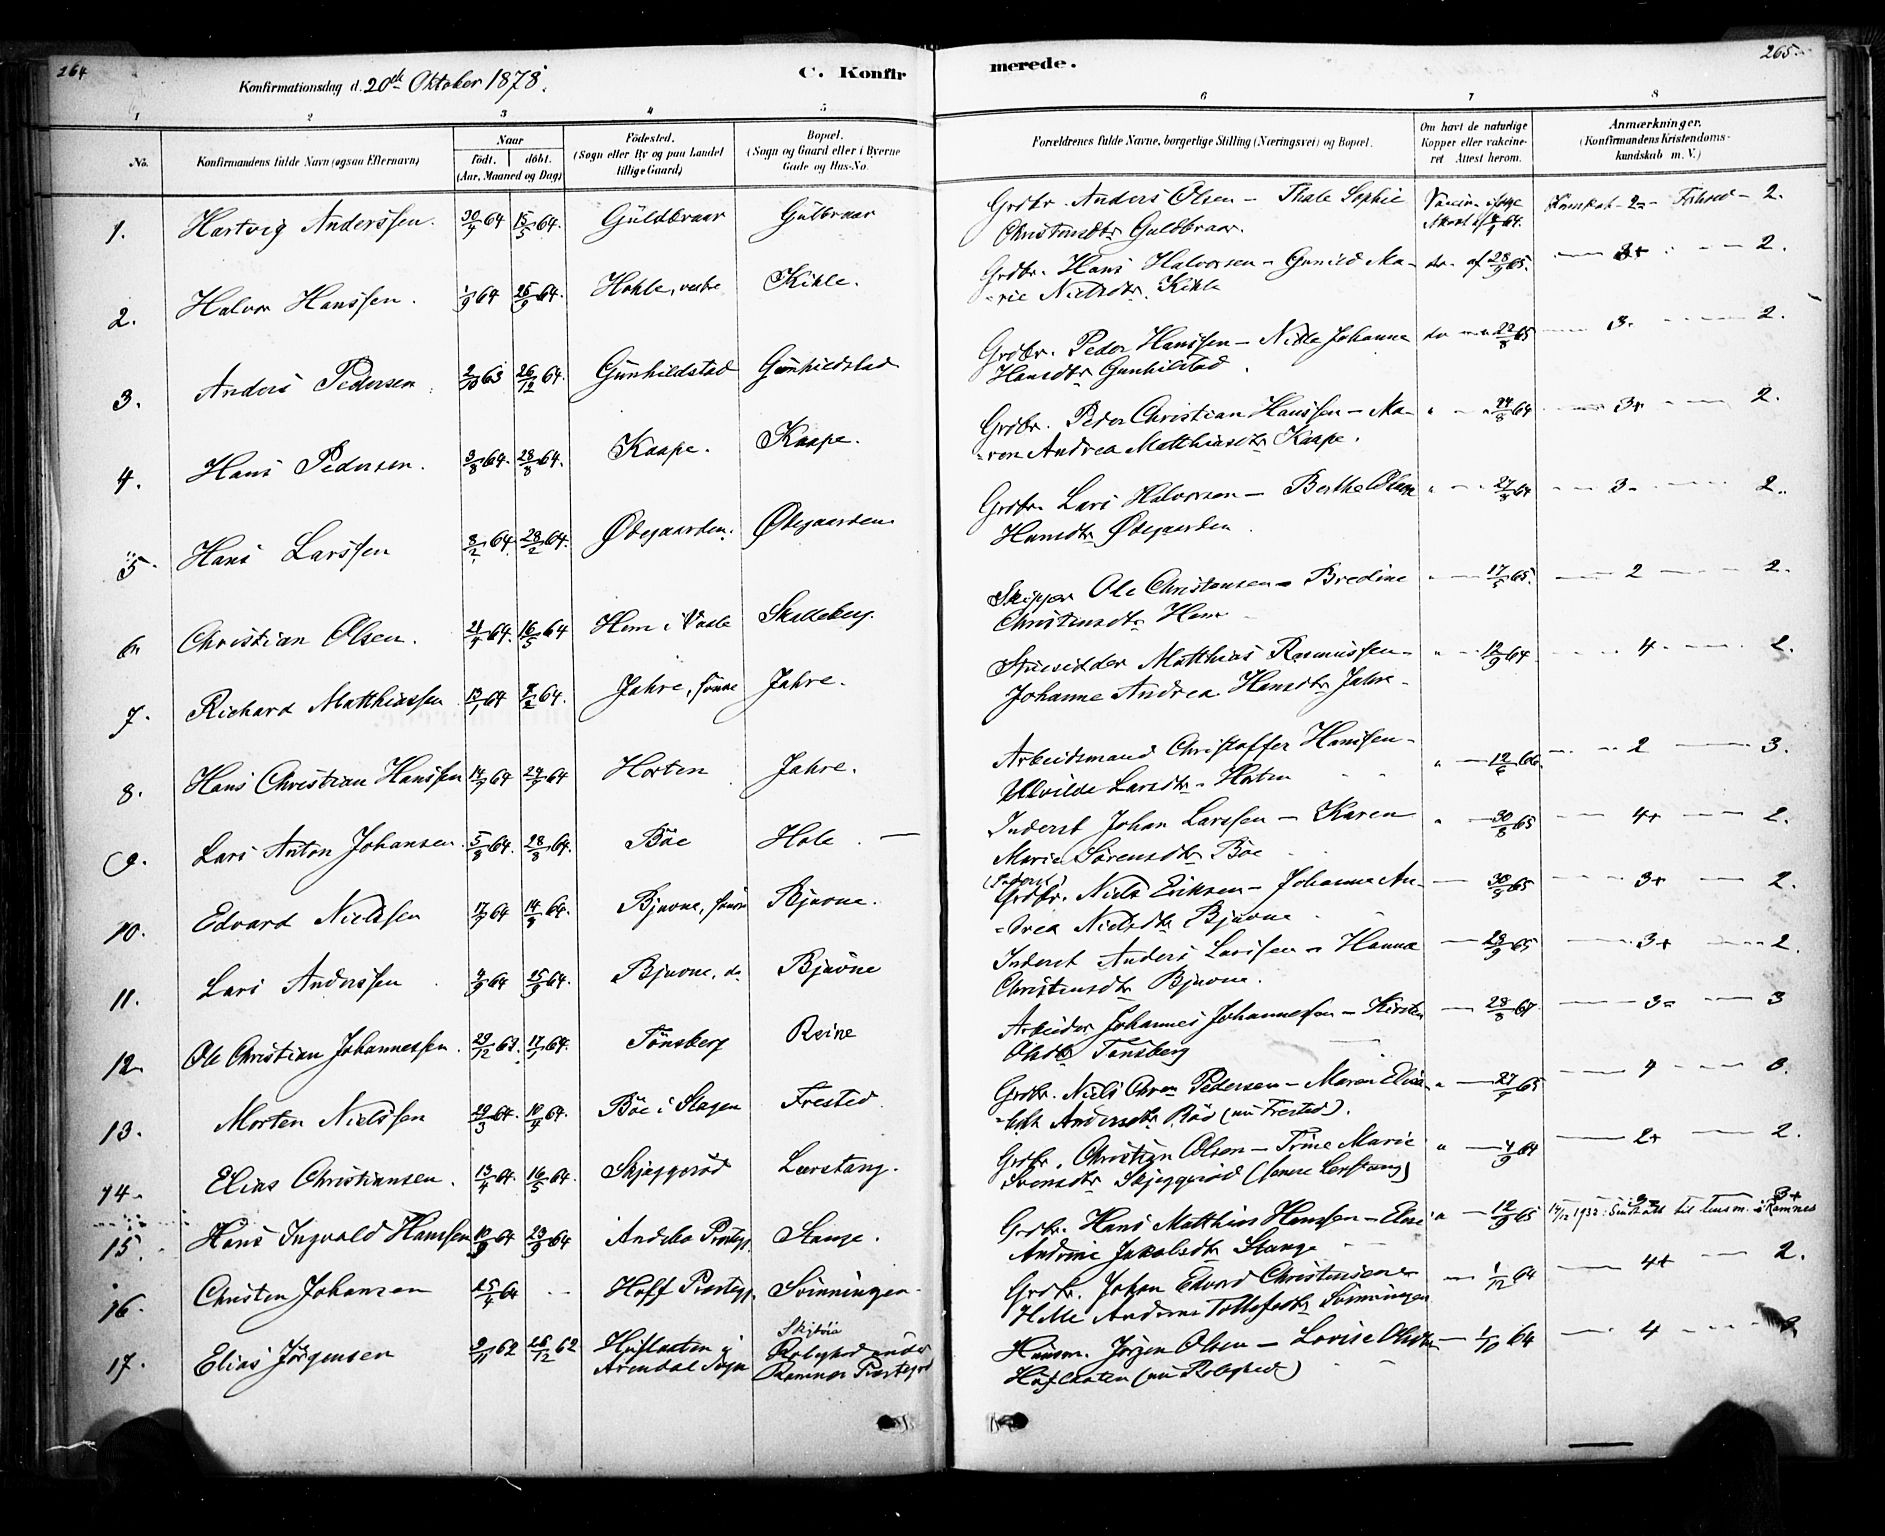 264
Konfirmationsdag d. 20de Oktober 1878.
C. Konfir
merede.
265.
1 2 3 4 5 6 7 8
No.
Konfirmandens fulde Navn (ogsaa Efternavn)
Naar
født. døbt.
(Aar, Maaned og Dag)
Fødested.
(Sogn eller By og paa Landet
tillige Gaard)
Bopæl.
(Sogn og Gaard eller i Byerne
Gade og Hus-No.
Forældrenes fulde Navne, borgerlige Stilling (Næringsvei) og Bopæl.
Om havt de naturlige
Kopper eller vakcine-
ret Attest herom.
Anmærkninger.
(Konfirmandens Kristendoms-
kundskab m. V.)
1. Hartvig Anderssen. 30/4 64 15/5 64. Guldbraar Gulbraar Grdbr. Anders Olsen — Thale Sophie 2.
Christensdtr Guldbraar.
2. Halvor Hanssen. 1/9 64 25/9 64. Hohle, vestre Kihle. Grdbr. Hans Halvorsen — Gunild Ma- do. af 28/9 65. 3+ 2.
-rie Nielsdtr. Kihle
3. Anders Pedersen 2/10 63 26/12 64. Gunhildstad Gunhildstad Grdbr. Peder Hanssen — Nille Johanne 22/8 65 3- 2.
Hansdtr Gunhilstad.
4. Hans Pedersen. 3/8 64. 28/8 64. Kaape. Kaape. Grdbr. Peder Christian Hanssen — Ma- 24/8 64 3+ 2.
-ren Andrea Matthiasdtr Kaape.
5. Hans Larssen 8/2 64. 28/2 64. Ødegaarden. Ødegaarden Grdbr. Lars Halvorsen — Berthe Olava 27/8 64 3- 2.
Hansdtr Ødegaarden.
6. Christian Olsen. 21/4 64. 16/5 64 Hem i Vaale Skalleberg. Skipper Ole Christensen — Bredine 17/5 65. 2 2.
Christensdtr Hem
7. Richard Matthiassen 13/1 64 7/2 64. Jahre, søndre Jahre. Matthias Rasmussen- 12/9 64 4 2.
Johanne Andrea Hansdtr Jahre-
8. Hans Christian Hanssen 14/7 64 24/7 64 Horten Jahre. Arbeidsmand Christoffer Hanssen- 12/6 66 2 3.
Larsdtr - Horten
9. Lars Anton Johansen. 5/8 64. 28/8 64. Böe Hole — Inderst Johan Larssen — Karen 30/8 65 4+ 2.
Marie Sörensdtr Böe
10. Edvard Nielssen 17/7 64 14/8 64. Bjuvne, søndre Bjuvne. (Inderst) Grdbr. Niels Eriksen — Johanne An- 30/8 65 3+ 2.
-drea Nielsdtr Bjuvne
11. Lars Anderssen 9/9 64 25/9 64. Bjuvne, do Bjuvne Inderst Anders Larssen — Hanna 28/9 65 3+ 2.
Christensdtr Bjuvne.
12 Ole Christian Johannessen. 29/12 63. 17/1 64. Tönsberg Reine Arbeider Johannes Johannessen — Kirsten 28/8 67 3- 3
Olsdtr Tönsberg
13. Morten Nielssen 29/3 64. 10/4 64. Böe i Slagen Frested Grdbr. Niels Chren Pedersen — Maren Elisa- 27/7 65 4
-beth Andersdtr Böe (nu Frested).
14. Elias Christiansen. 13/4 64. 16/5 64. Skjeggeröd Lerstang. Grdbr. Christian Olsen — Trine Marie 4/9 64 2+ 2.
Svensdtr Skjeggeröd (senere Lerstang)
15. Hans Ingvald Hanssen 10/9 64 29/9 64 Andebo Prestegj. Stange. Grdbr. Hans Matthias Hanssen — Elise 12/9 65 17/12 1932: til lensm. i Ramnes
Andrine Jakobsdtr Stange
16. Christen Johansen 25/4 64 Hoff Prestegj. Svinningen. Grdbr. Johan Edvard Christensen 1/12 64 4+ 2.
Helle Andrine Tollefsdtr Svinningen
17. Elias Jörgensen 2/11 62 26/12 62 Huflaaten i Rolighed under Husm. Jörgen Olsen — Lovise Olsdtr 1/10 64 4
Arendal Sogn Ramnes Prestegjd Huflaaten (nu Rolighed)